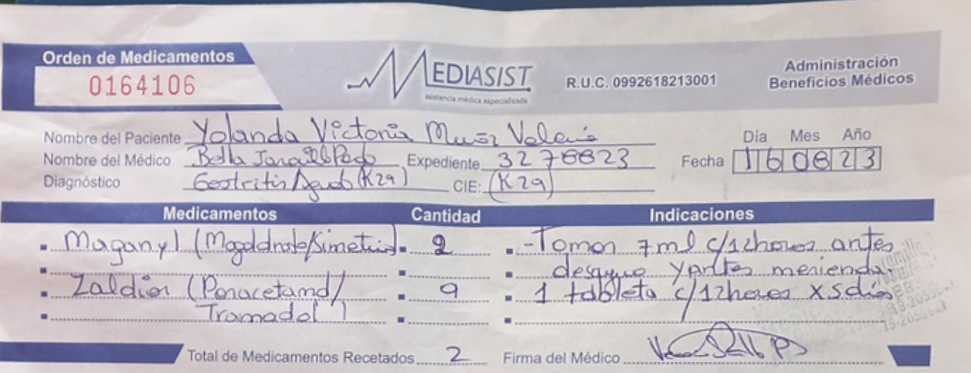 Orden de Medicamentos
0164106
MEDIASIST
asistencia médica especializada
R.U.C. 0992618213001
Administración
Beneficios Médicos
Nombre del Paciente Yolanda Victoria Muñoz
Nombre del Médico Bella
Expediente 3276823
Diagnóstico Gastritis Aguda (K29)
CIE: (K29)
Día Mes Año
Fecha 16 08 23
Medicamentos Cantidad Indicaciones
Muganyl (Magaldrato/Simetico). 2 - Tomar 7ml c/12horas antes
desayuno y antes merienda.
Zaldiar (Paracetamol/ 9 1 tableta c/12horas x 5 días
Tramadol)
Total de Medicamentos Recetados 2
Firma del Médico